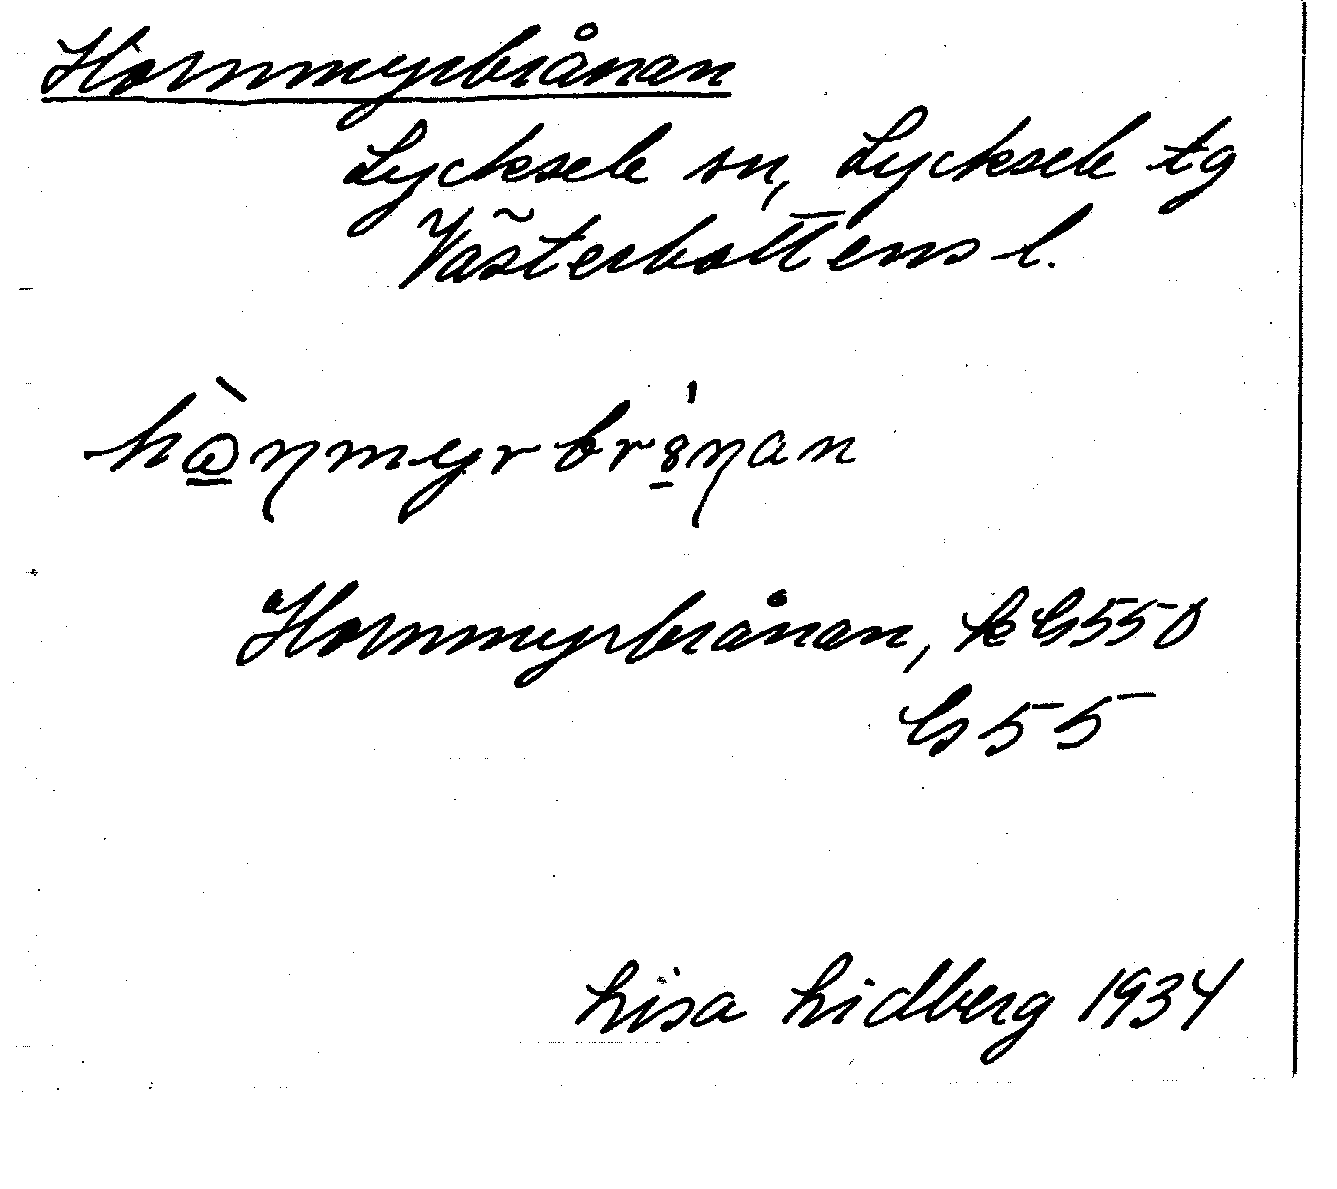 Hornmyrbrånan
Lycksele sn, Lycksele tg
Västerbottens l.
Hornmyrbrånan, k G550
G55
Lisa Lidberg 1934